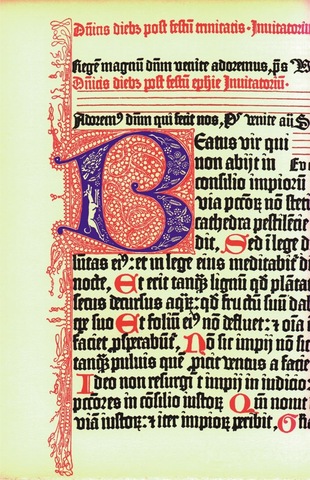 Dñicis diebꝫ post festũ trinitatis · Inuitatoriũ
Regẽ magnũ dñm venite adoremus, p̃s
Dñicis diebꝫ post festũ ephie Inuitatoriũ·
Adorem⁹ dñm qui fecit nos, p̃⁹ venite añ
Beatus vir qui
non abijt in
consilio impiorũ
via pctõꝝ nõ stetit
cathedra pestilẽtie
dit, Sed ĩ lege d
lũtas ei⁹: et in lege eius meditabit̃
nocte, Et erit tanqͣꝫ lignũ qd̃ plãta
secus decursus aqͣꝝ: qd̃ fructũ suũ dab
tꝑe suo Et foliũ ei⁹ nõ defluet: ⁊ oĩa
faciet ꝓsperabũt̃, Nõ sic impij nõ sic
tanqͣꝫ puluis quẽ ꝓicit ventus a facie
Ideo non resurgũt impij in iudicio:
pctõres in cõsilio iustoꝝ Qm̃ nouit
viã iustoꝝ: ⁊ iter impioꝝ peribit,